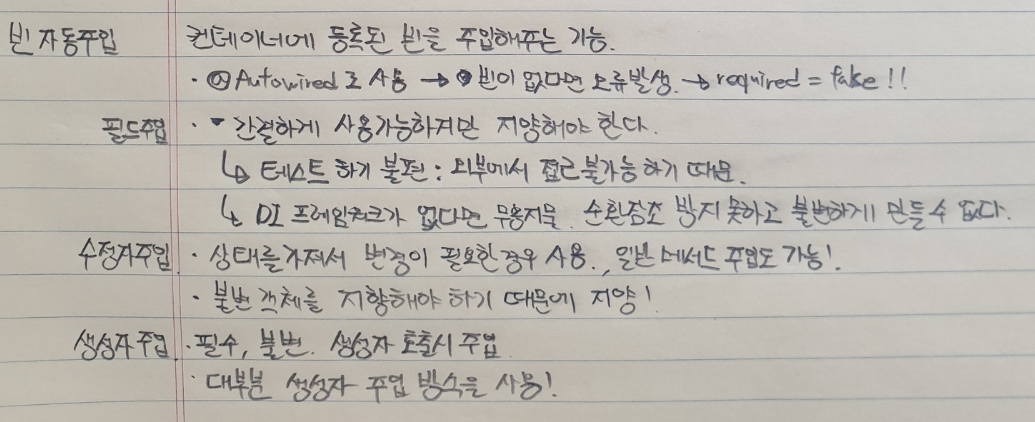 빈 자동주입 컨테이너에 등록된 빈을 주입해주는 기능.
· @Autowired로 사용 → 빈이 없다면 오류발생. → required = false !!
필드주입 · 간결하게 사용가능하지만 지양해야 한다.
↳ 테스트 하기 불편 : 외부에서 접근불가능하기 때문.
↳ DI 프레임워크가 없다면 무용지물. 순환참조 방지 못하고 불변하게 만들 수 없다.
수정자주입 · 상태를가져서 변경이 필요한경우 사용., 일반 메서드 주입도 가능!.
· 불변 객체를 지향해야 하기 때문에 지양!
생성자 주입 · 필수, 불변. 생성자 호출시 주입
· 대부분 생성자 주입 방식을 사용!